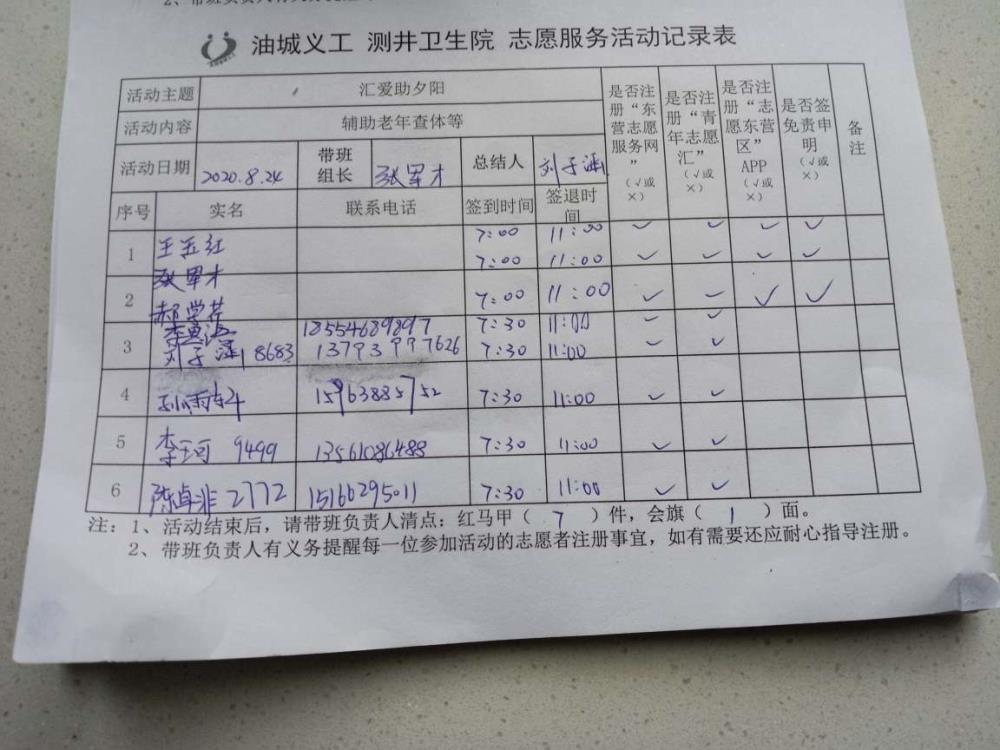 油城义工 测井卫生院 志愿服务活动记录表
活动主题 汇爱助夕阳
活动内容 辅助老年查体等
活动日期 2020.8.24 带班组长 张军才 总结人 刘子涵
是否注册“东营志愿服务网”(√或×) 是否注册“青年志愿汇”(√或×) 是否注册“志愿东营区”APP(√或×) 是否签免责申明(√或×) 备注
序号 实名 联系电话 签到时间 签退时间
1 王玉红 7:00 11:00 ✓ ✓ ✓ ✓
张军才 7:00 11:00 ✓ ✓ ✓ ✓
2 郝学芹 7:00 11:00 ✓ ✓ ✓ ✓
18554689897 7:30 11:00 ✓ ✓
3 刘子涵 8683 13793997626 7:30 11:00 ✓ ✓
4 15963885752 7:30 11:00 ✓ ✓
5 李珂 9499 13561086488 7:30 11:00 ✓ ✓
6 陈卓非 2772 15166295011 7:30 11:00 ✓ ✓
注：1、活动结束后，请带班负责人清点：红马甲（7）件，会旗（1）面。
2、带班负责人有义务提醒每一位参加活动的志愿者注册事宜，如有需要还应耐心指导注册。